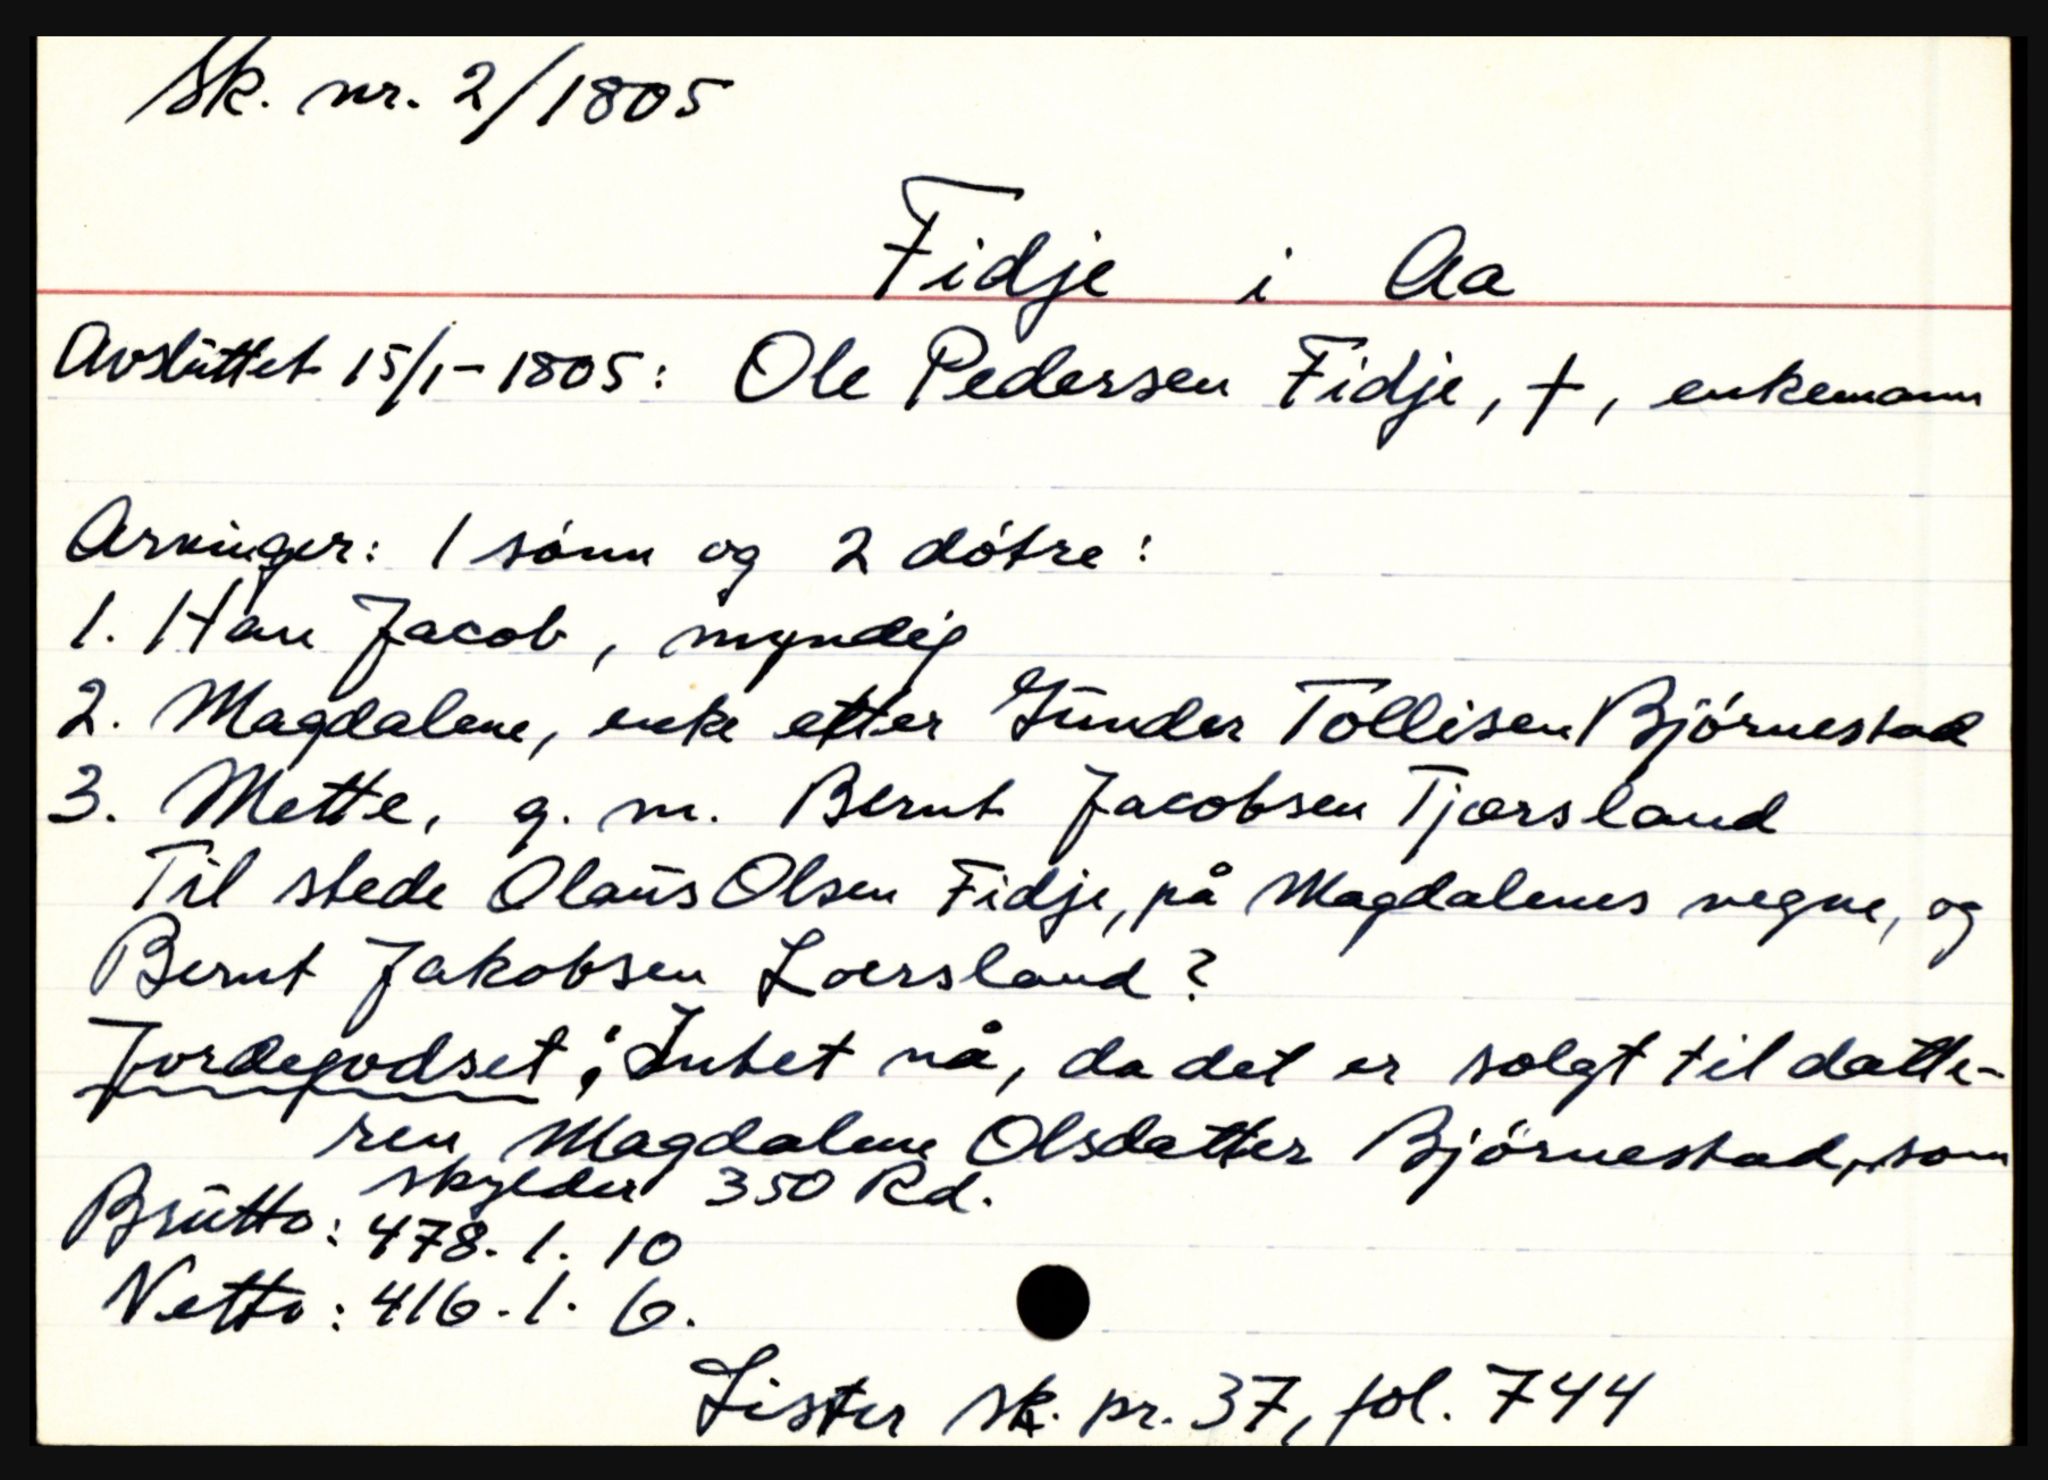 Sk. nr. 2/1805
Fidje i Aa
Avsluttet 15/1-1805: Ole Pedersen Fidje, †, enkemann
Arvinger: 1 sónn og 2 dótre:
1. Han Jacob, myndig
2. Magdalene, enke etter Gunder Tollisen Bjórnestad
3. Mette, g. m. Bernt Jacobsen Tjærsland
Til stede Olaus Olsen Fidje, på Magdalenes vegne, og
Bernt Jakobsen Loersland?
Jordegodset: Intet nå, da det er solgt til datte-
ren Magdalene Olsdatter Bjórnestad, som
skylder 350 Rd.
Brutto: 478. 1. 10
Netto: 416. 1. 6.
Lister sk. pr. 37, fol. 744